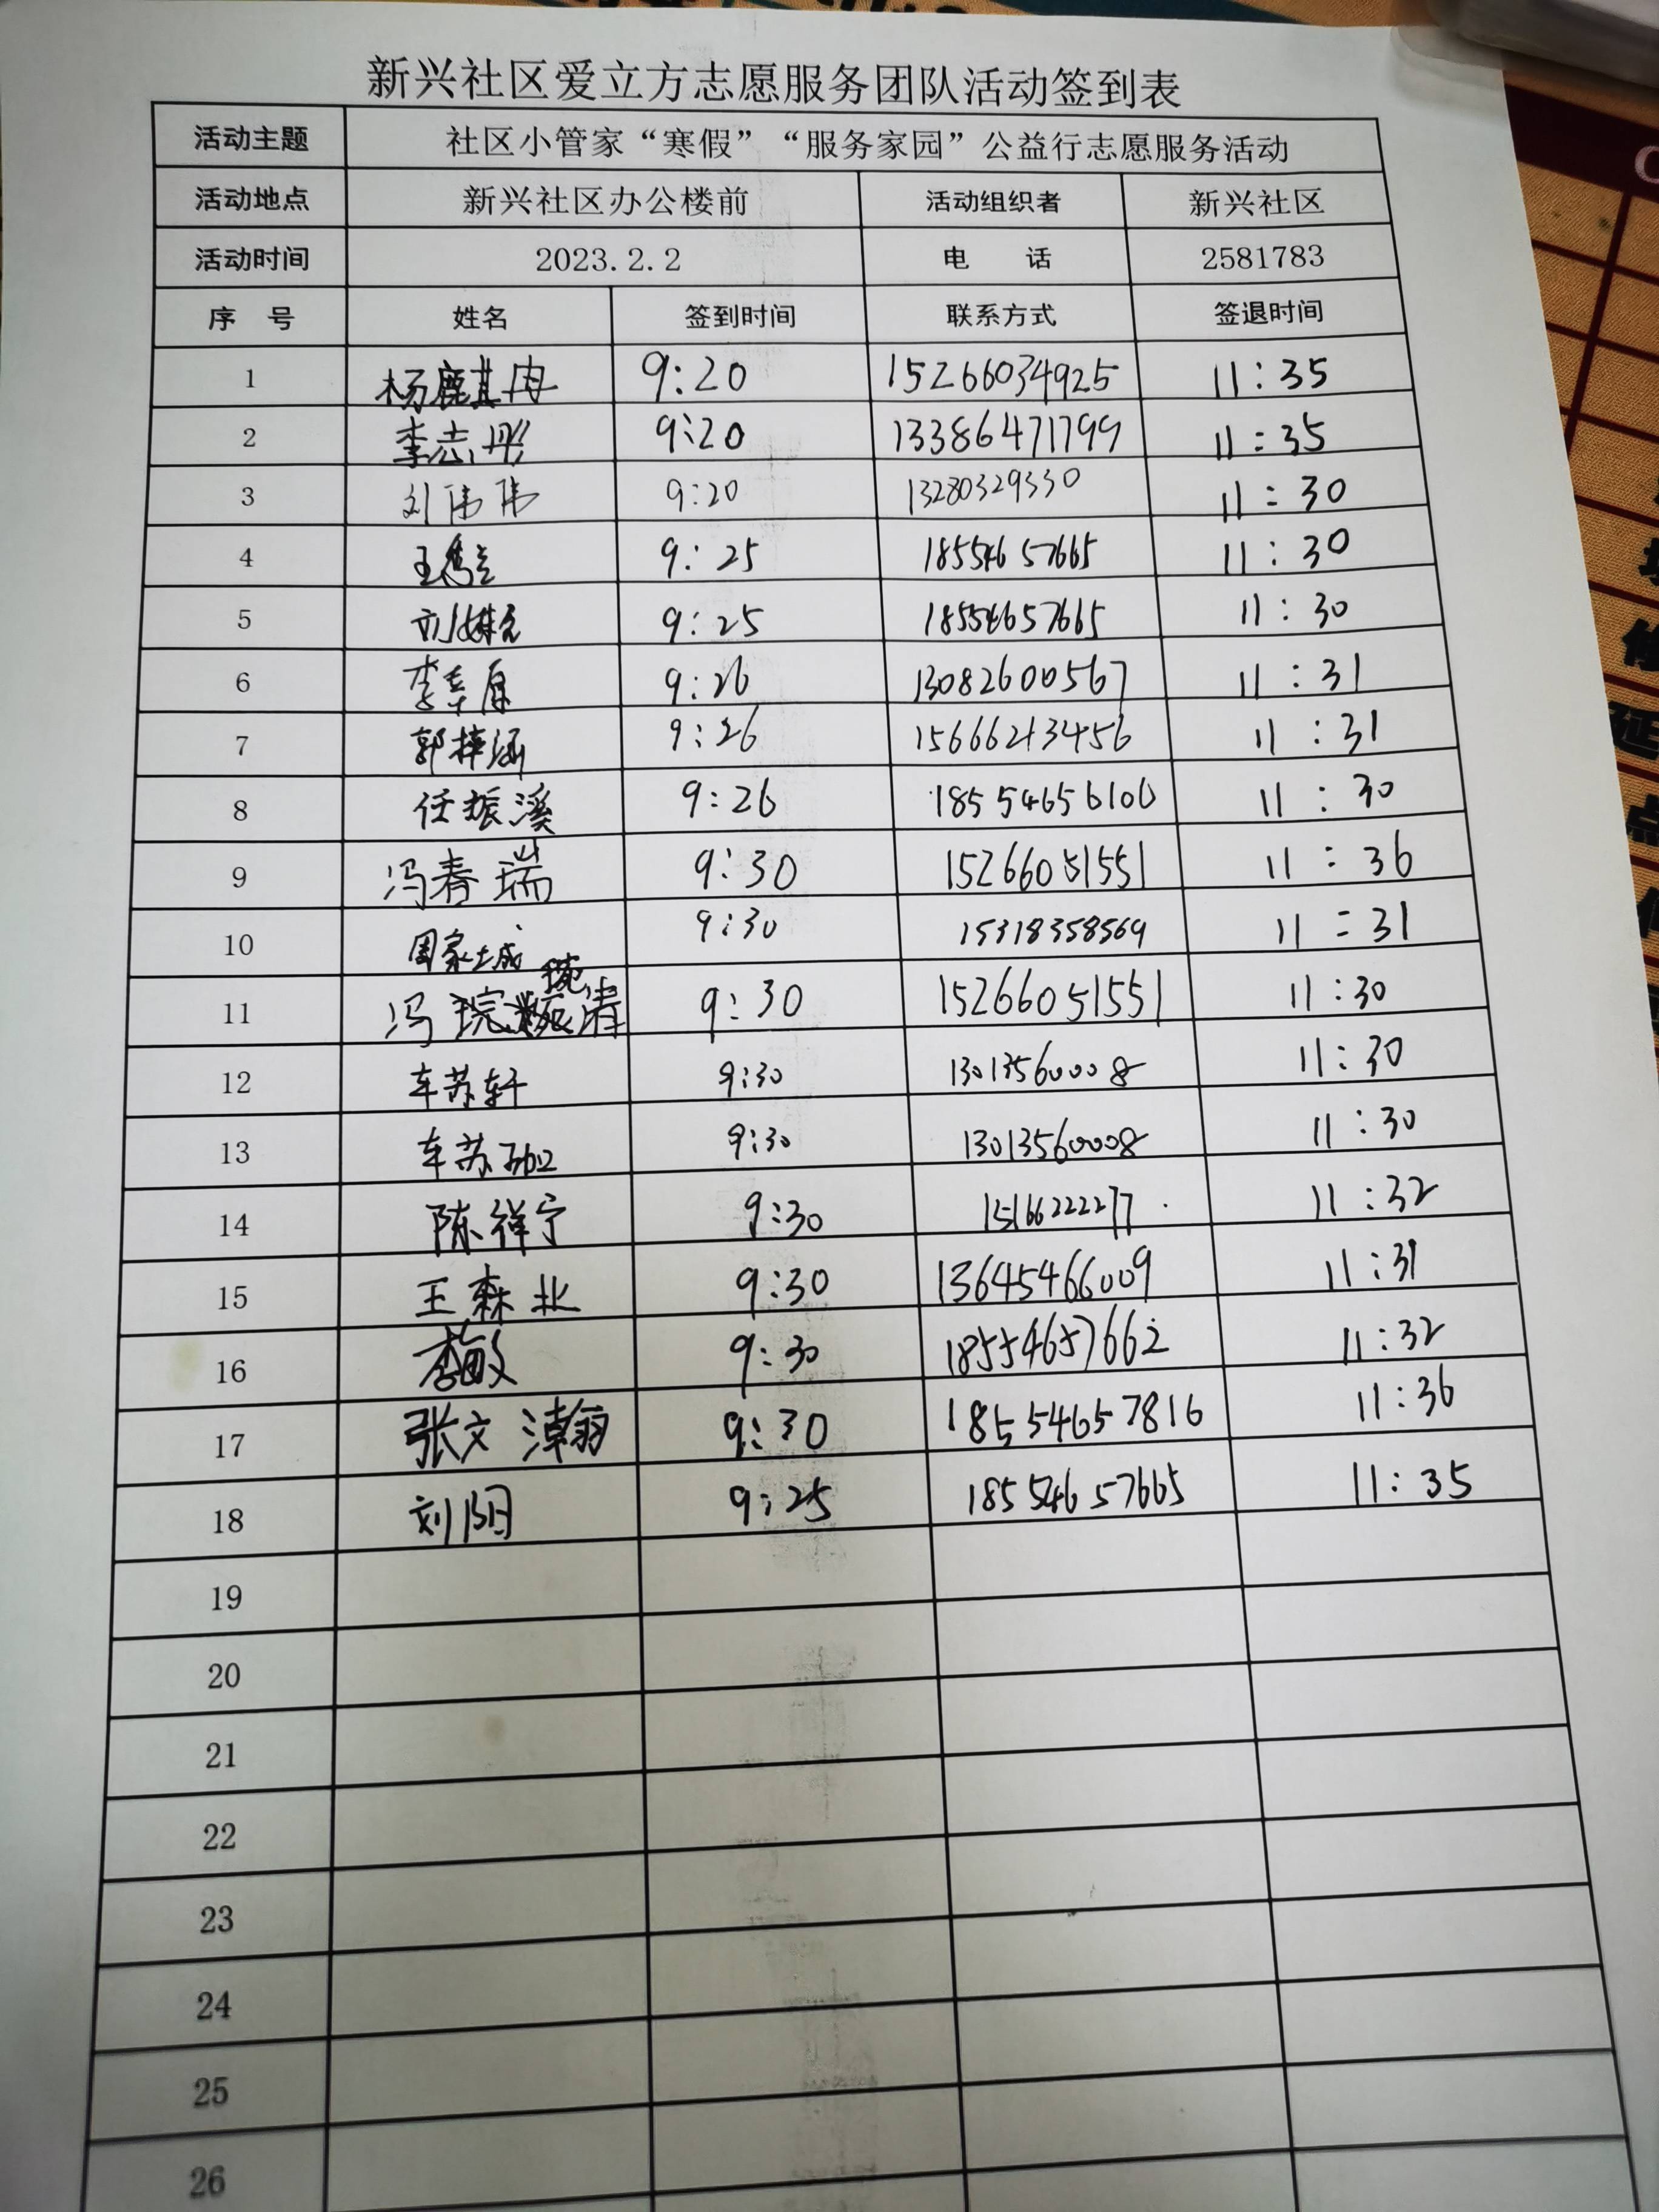 新兴社区爱立方志愿服务团队活动签到表
活动主题 社区小管家“寒假”“服务家园”公益行志愿服务活动
活动地点 新兴社区办公楼前 活动组织者 新兴社区
活动时间 2023.2.2 电 话 2581783
序 号 姓名 签到时间 联系方式 签退时间
1 杨鹿其冉 9:20 15266034925 11:35
2 李志彤 9:20 13386471799 11:35
3 刘伟伟 9:20 13280329330 11:30
4 王 9:25 18554657665 11:30
5 刘 9:25 18554657665 11:30
6 李幸原 9:26 13082600567 11:31
7 郭梓涵 9:26 15666213456 11:31
8 任振溪 9:26 18554656106 11:30
9 冯春瑞 9:30 15266051551 11:36
10 周家 9:30 15318358569 11:31
11 冯琬清 9:30 15266051551 11:30
12 车苏轩 9:30 13013560008 11:30
13 车苏 9:30 13013560008 11:30
14 陈祥宁 9:30 15166222277 11:32
15 王森北 9:30 13645466009 11:31
16 李敏 9:30 18554657662 11:32
17 张文瀚 9:30 18554657816 11:36
18 刘阳 9:25 18554657665 11:35
19
20
21
22
23
24
25
26